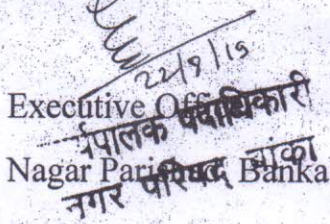 22/9/19
Executive Officer
कार्यपालक पदाधिकारी
Nagar Parishad Banka
नगर परिषद् बांका